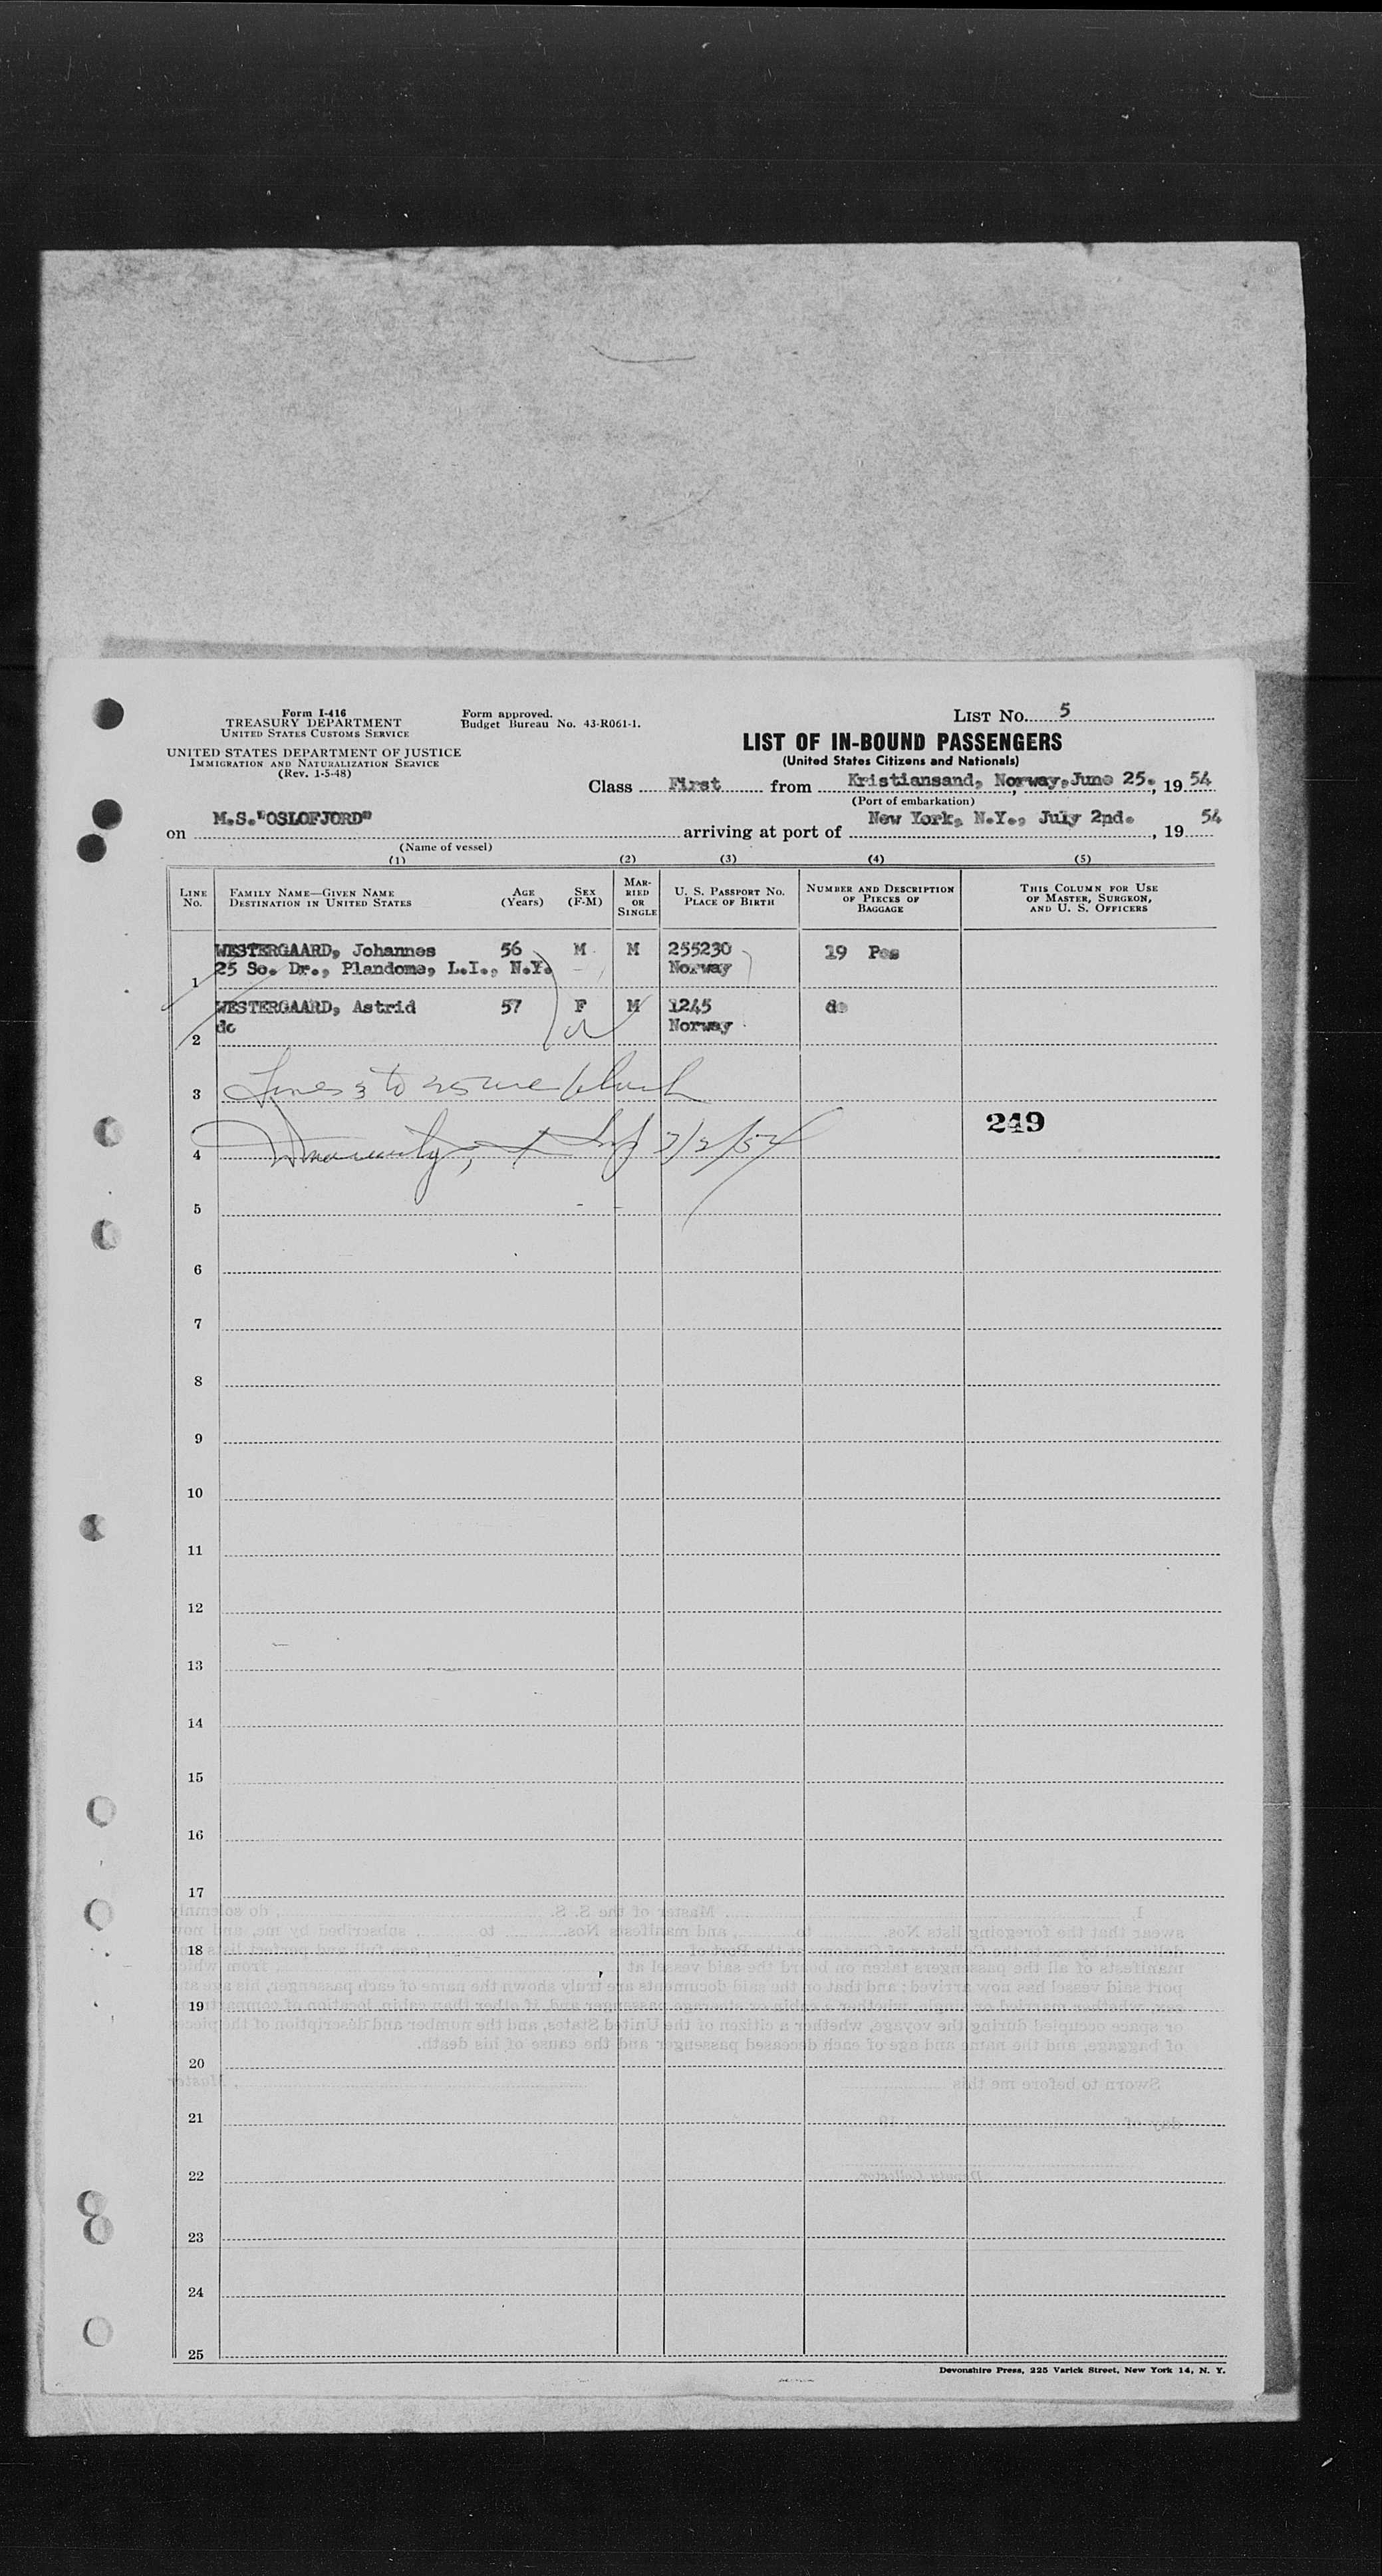 Form I-416
TREASURY DEPARTMENT
UNITED STATES CUSTOMS SERVICE
UNITED STATES DEPARTMENT OF JUSTICE
IMMIGRATION AND NATURALIZATION SERVICE
(Rev. 1-5-48)
Form approved.
Budget Bureau No. 43-R061-1.
LIST No. 5
LIST OF IN-BOUND PASSENGERS
(United States Citizens and Nationals)
Class First from Kristiansand, Norway, June 25., 19 54
(Port of embarkation)
on M.S."OSLOFJORD" arriving at port of New York, N.Y., July 2nd. , 19 54
(Name of vessel)
(1) (2) (3) (4) (5)
LINE No. FAMILY NAME—GIVEN NAME DESTINATION IN UNITED STATES AGE (Years) SEX (F-M) MARRIED OR SINGLE U. S. PASSPORT NO. PLACE OF BIRTH NUMBER AND DESCRIPTION OF PIECES OF BAGGAGE THIS COLUMN FOR USE OF MASTER, SURGEON, AND U. S. OFFICERS
WESTERGAARD, Johannes 56 M M 255230 19 Pcs
25 So. Dr., Plandome, L.I., N.Y. Norway
1
WESTERGAARD, Astrid 57 F M 1245 do
do Norway
2
3 Lines 3 to 25 are blank
249
4 7/2/54
5
6
7
8
9
10
11
12
13
14
15
16
17
I, Master of the S. S. , do solemnly
swear that the foregoing lists Nos. to , and manifests Nos. to , subscribed by me, and now
18
manifests of all the passengers taken on board the said vessel at from which
port said vessel has now arrived; and that on the said documents are truly shown the name of each passenger, his age and
19
or space occupied during the voyage, whether a citizen of the United States, and the number and description of the pieces
of baggage, and the name and age of each deceased passenger and the cause of his death.
20
Sworn to before me this , Master
21 day of 19
22 Deputy Collector
23
24
25
Devonshire Press, 225 Varick Street, New York 14, N. Y.